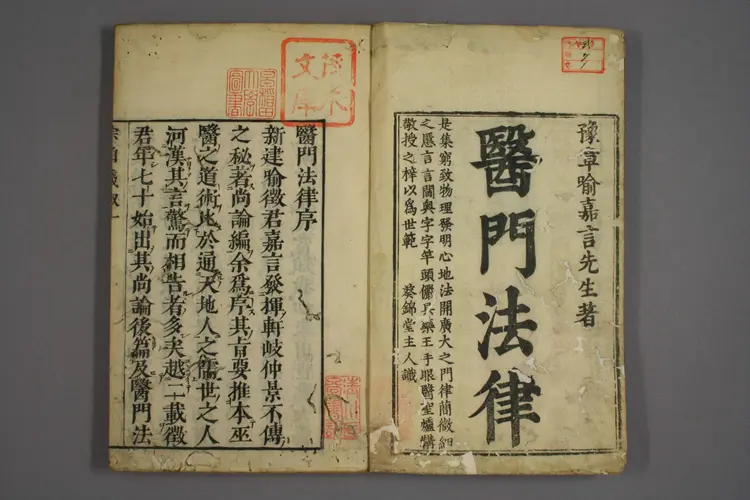 豫章喻嘉言先生著
醫門法律
是集窮致物理發明心地法開廣大之門律簡微細
之愆言言閫奧字字竿頭儼具藥王手眼醫室爐韛
敬授之梓以為世範 葵錦堂主人識
醫門法律序
新建喻徵君嘉言發揮軒岐仲景不傳
之秘著尚論編余為序其旨要推本巫
醫之道術比於通天地人之儒世之人
河漢其言驚而相告者多矣越二載徵
君年七十始出其尚論後篇及醫門法
文庫
圖書